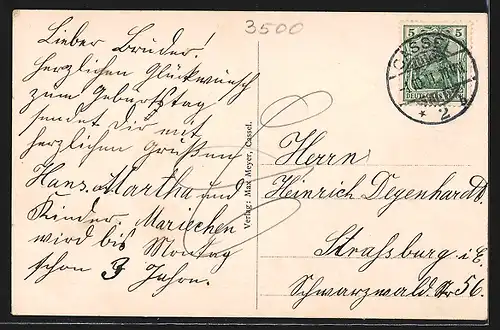 3500
Lieber Bruder!
Herzlichen Glückwunsch
zum Geburtstag
sendet Dir mit
herzlichen Grüßen
Hans, Martha und
Kinder. Mariechen
wird bis Montag
schon 3 Jahre.
Verlag: Max Meyer, Cassel.
5 5
CASSEL
DEUTSCHES REICH
* 2
Herrn
Heinrich Degenhardt
Strassburg i. E.
Schwarzwald. Str 56.